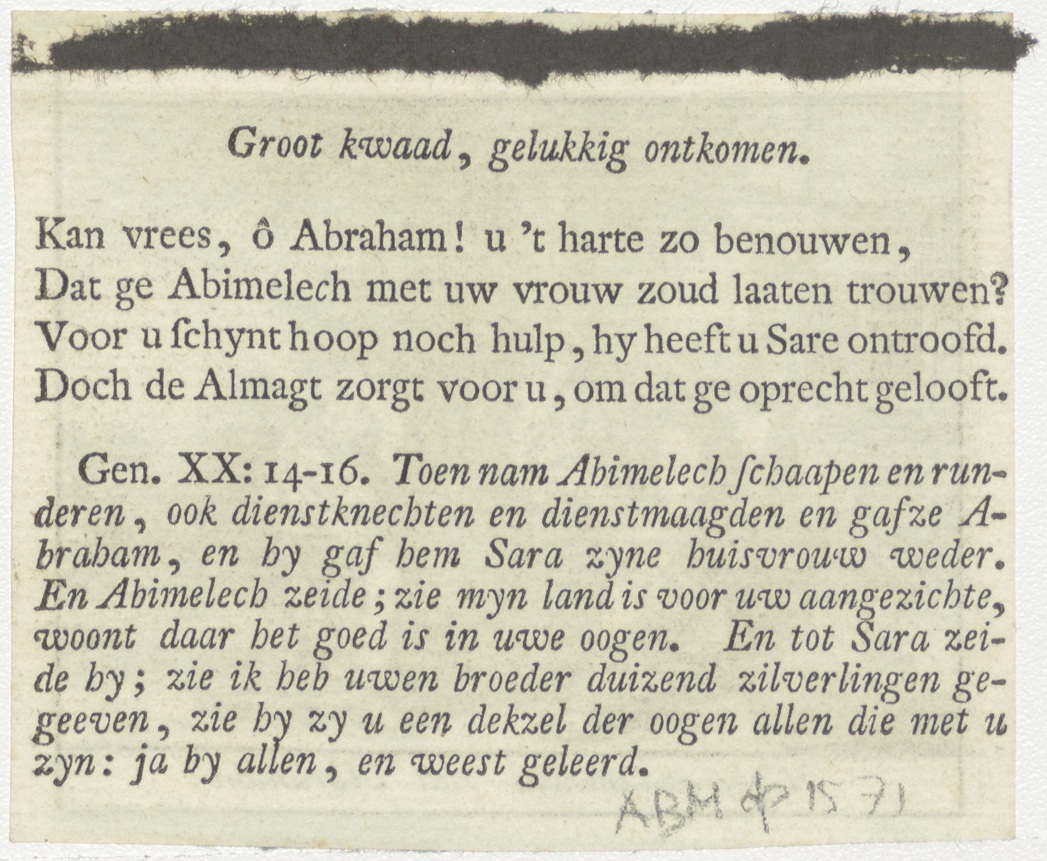 Groot kwaad, gelukkig ontkomen.
Kan vrees, ô Abraham! u 't harte zo benouwen,
Dat ge Abimelech met uw vrouw zoud laaten trouwen?
Voor u ſchynt hoop noch hulp, hy heeft u Sare ontroofd.
Doch de Almagt zorgt voor u, om dat ge oprecht gelooft.
Gen. XX: 14-16. Toen nam Abimelech ſchaapen en run-
deren, ook dienstknechten en dienstmaagden en gafze A-
braham, en hy gaf hem Sara zyne huisvrouw weder.
En Abimelech zeide; zie myn land is voor uw aangezichte,
woont daar het goed is in uwe oogen. En tot Sara zei-
de hy; zie ik heb uwen broeder duizend zilverlingen ge-
geeven, zie hy zy u een dekzel der oogen allen die met u
zyn: ja by allen, en weest geleerd.
ABM dp 1571